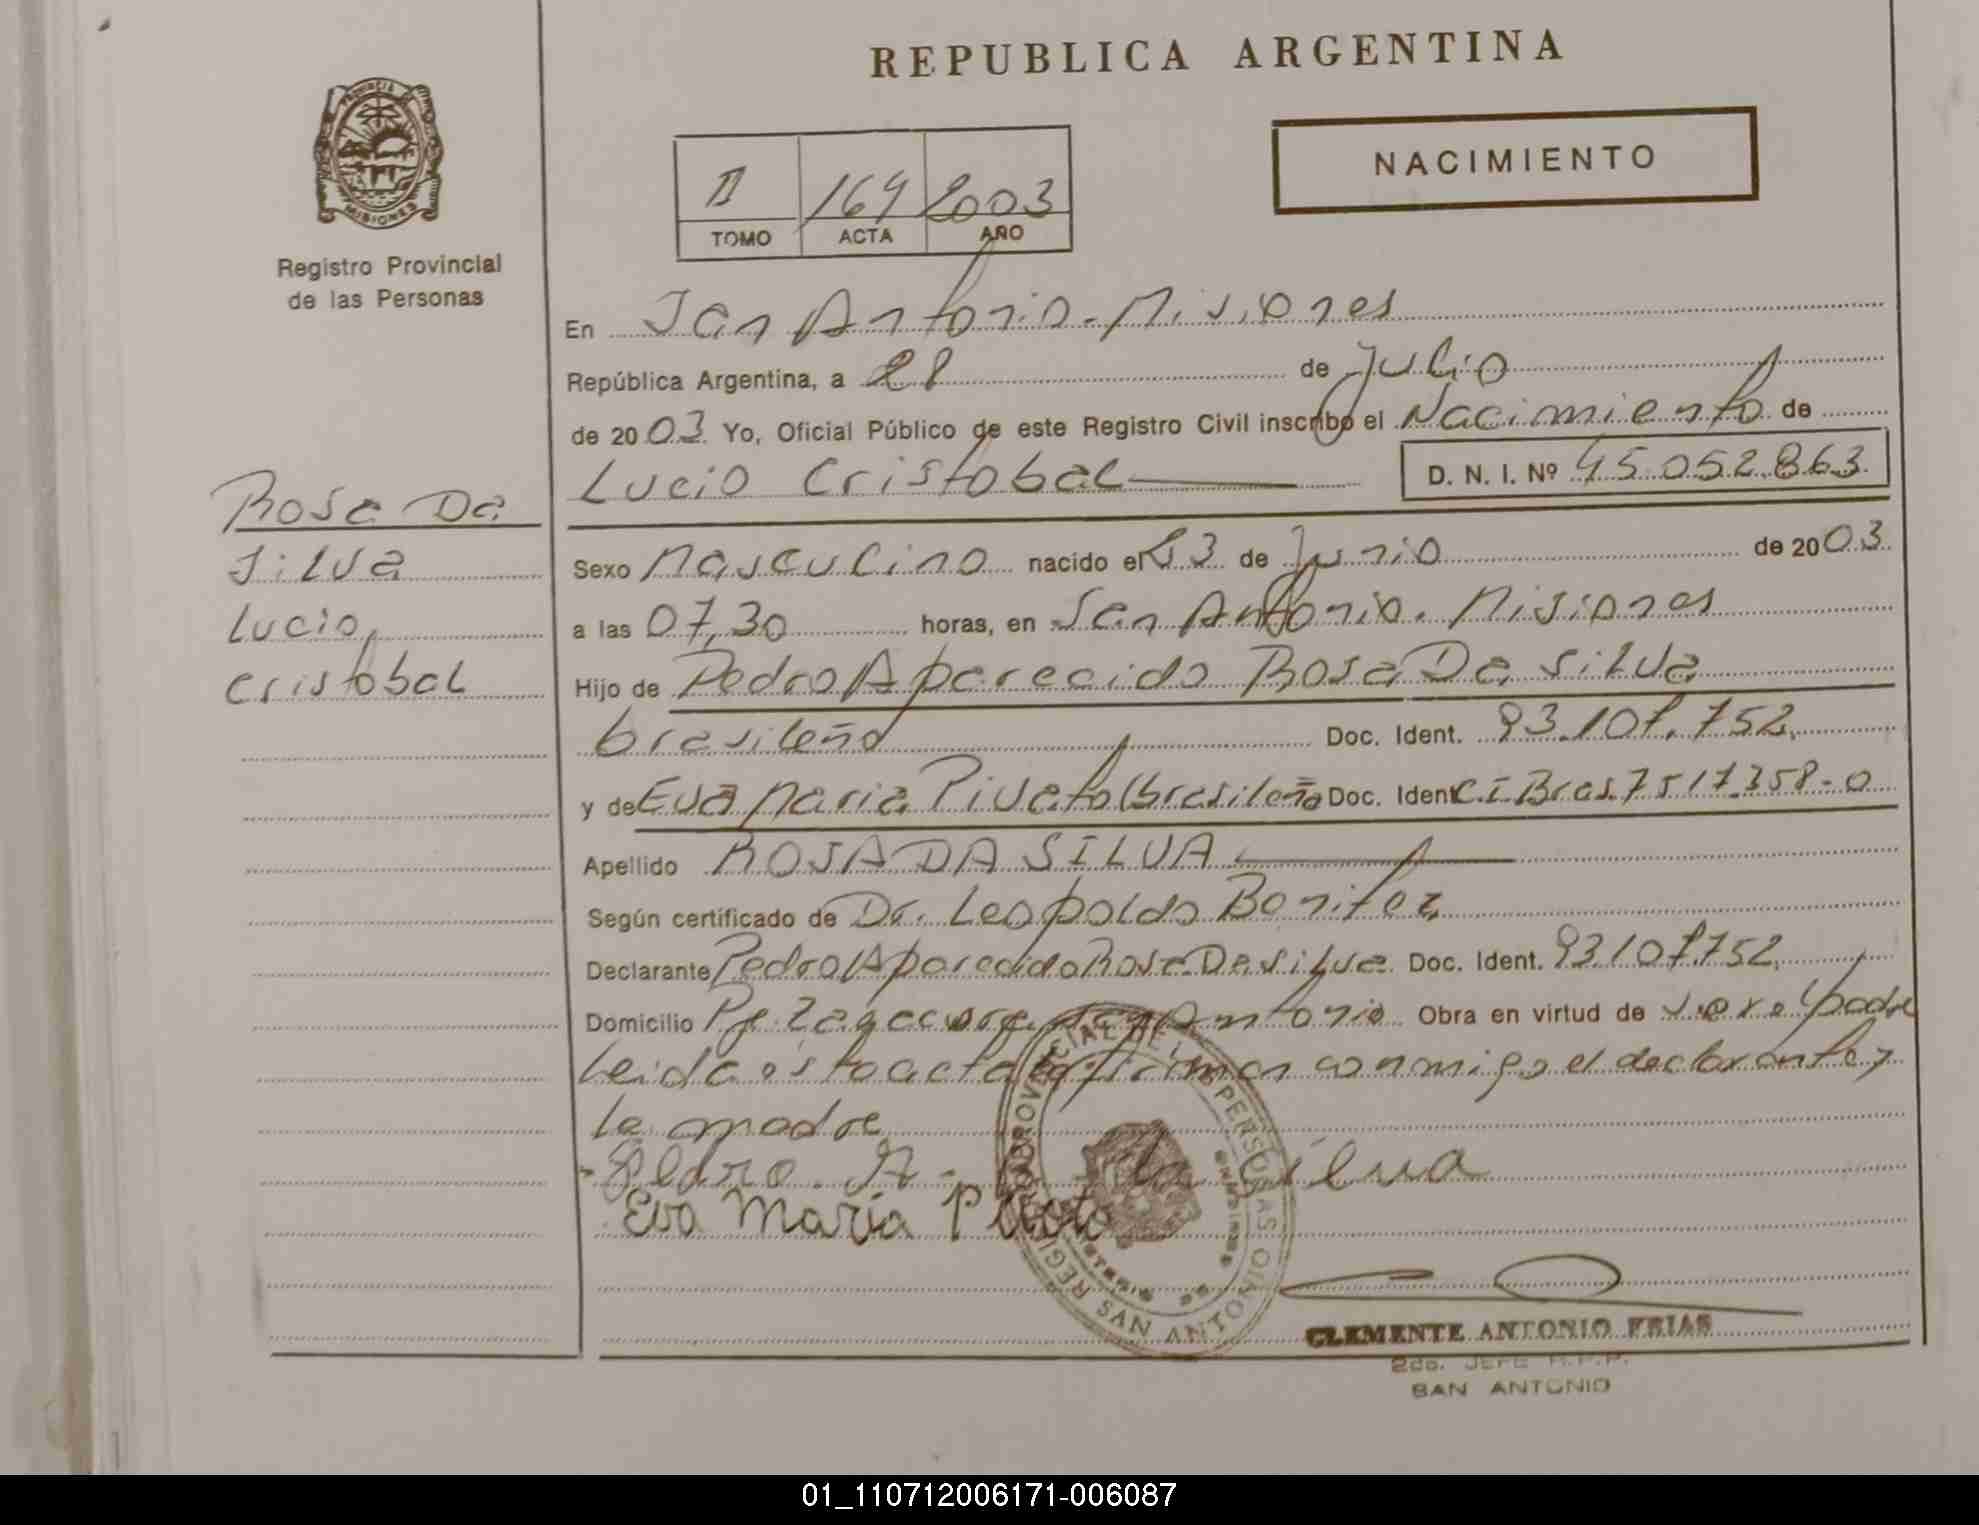 REPUBLICA ARGENTINA
NACIMIENTO
II 169 2003
TOMO ACTA AÑO
PROVINCIA DE
MISIONES
Registro Provincial
de las Personas
En San Antonio - Misiones
República Argentina, a 28 de Julio
de 2003 Yo, Oficial Público de este Registro Civil inscribo el Nacimiento de
Lucio Cristobal D. N. I. Nº 45.052.863
Rosa Da
Silva
Lucio,
Cristobal
Sexo Masculino nacido el 23 de Junio de 2003
a las 07,30 horas, en San Antonio. Misiones
Hijo de Pedro Aparecido Rosa Da Silva
brasileño Doc. Ident. 93.107.752
y de Eva Maria Piveto (brasileña Doc. Ident C.I Bras. 7517.358-0
Apellido ROSA DA SILVA
Según certificado de Dr. Leopoldo Benitez
Declarante Pedro Aparecido Rosa Da Silva Doc. Ident. 93.107.752
Domicilio San Antonio Obra en virtud de padre
Leida esta acta firman conmigo el declarante y
la madre
Pedro. A. Da Silva
Eva María Piveto
REGISTRO PROVINCIAL DE LAS PERSONAS
SAN ANTONIO
CLEMENTE ANTONIO FRIAS
2do. JEFE R.P.P.
SAN ANTONIO
01_110712006171-006087